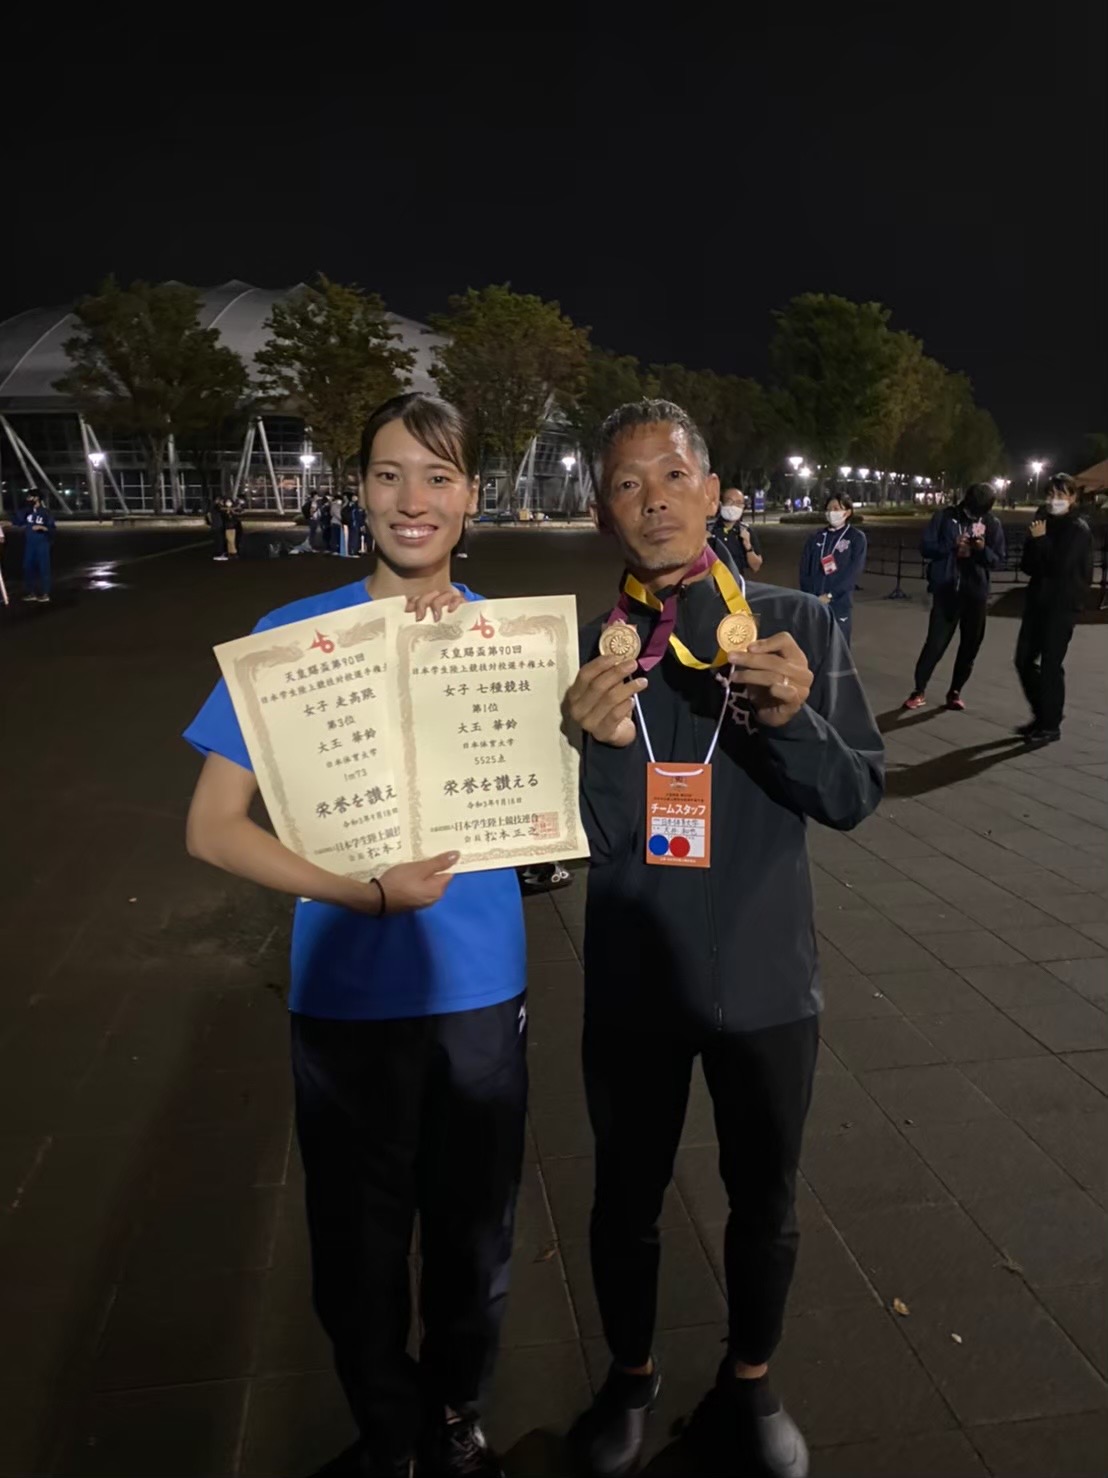 天皇賜盃第90回
日本学生陸上競技対校選手権大
女子 走高跳
第3位
大玉 華鈴
日本体育大学
1m73
栄誉を讃え
令和3年9月18日
日本学生陸上競技
会長 松本
天皇賜盃第90回
日本学生陸上競技対校選手権大会
女子 七種競技
第1位
大玉 華鈴
日本体育大学
5525点
栄誉を讃える
令和3年9月18日
日本学生陸上競技連合
会長 松本正之
チームスタッフ
日本体育大学